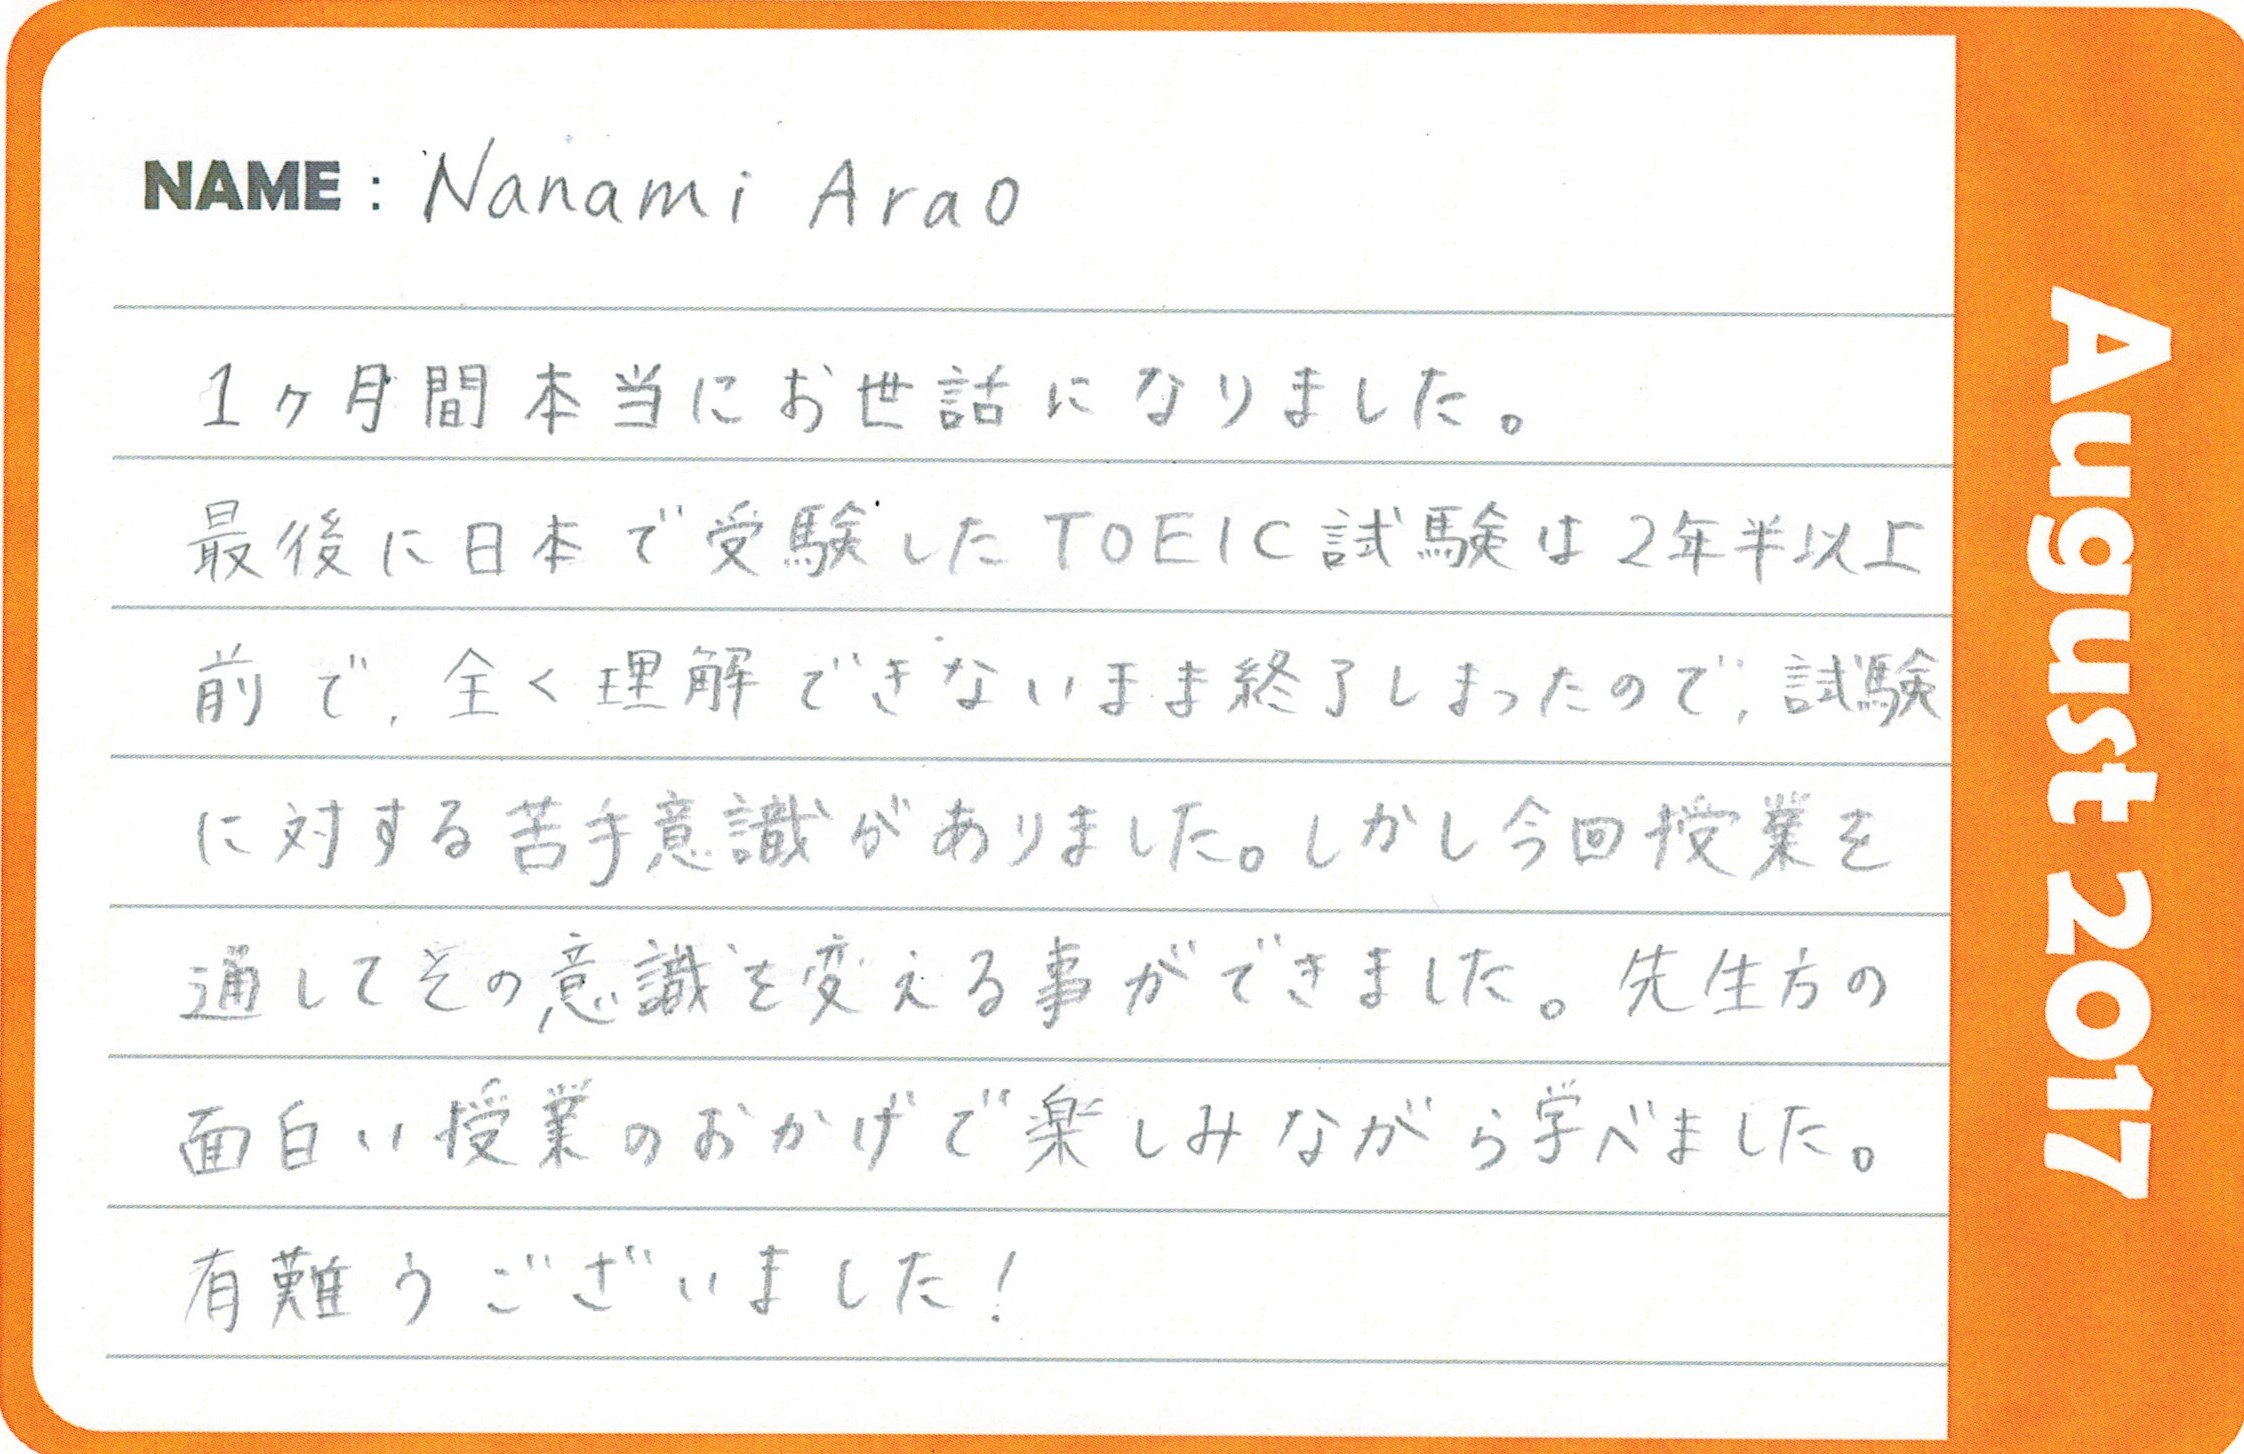 NAME : Nanami Arao
1ヶ月間本当にお世話になりました。
最後に日本で受験したTOEIC試験は2年半以上
前で、全く理解できないまま終了しまったので、試験
に対する苦手意識がありました。しかし今回授業を
通してその意識を変える事ができました。先生方の
面白い授業のおかげで楽しみながら学べました。
有難うございました!
August 2017